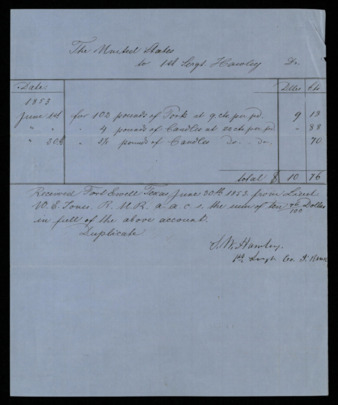 The United States
to 1st Sergt Hawley Dr.
Date: Dolls Cts
1853
June 1st for 102 pounds of Pork at 9 cts per pd. 9 18
" " " 4 pounds of Candles at 22 cts per pd " 88
" 30th " 3½ pounds of Candles do.. do.. 70
total $ 10 76
Received Fort Ewell Texas, June 30th 1853, from Lieut
W. E. Jones, R. M. R. a. a. c. s, the sum of ten 76/100 Dollars
in full of the above account.
Duplicate
Hawley.
1st Sergt Co.